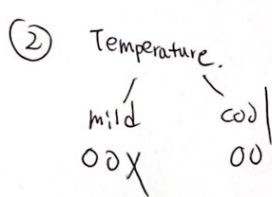 ② Temperature.
mild cool
OOX OO